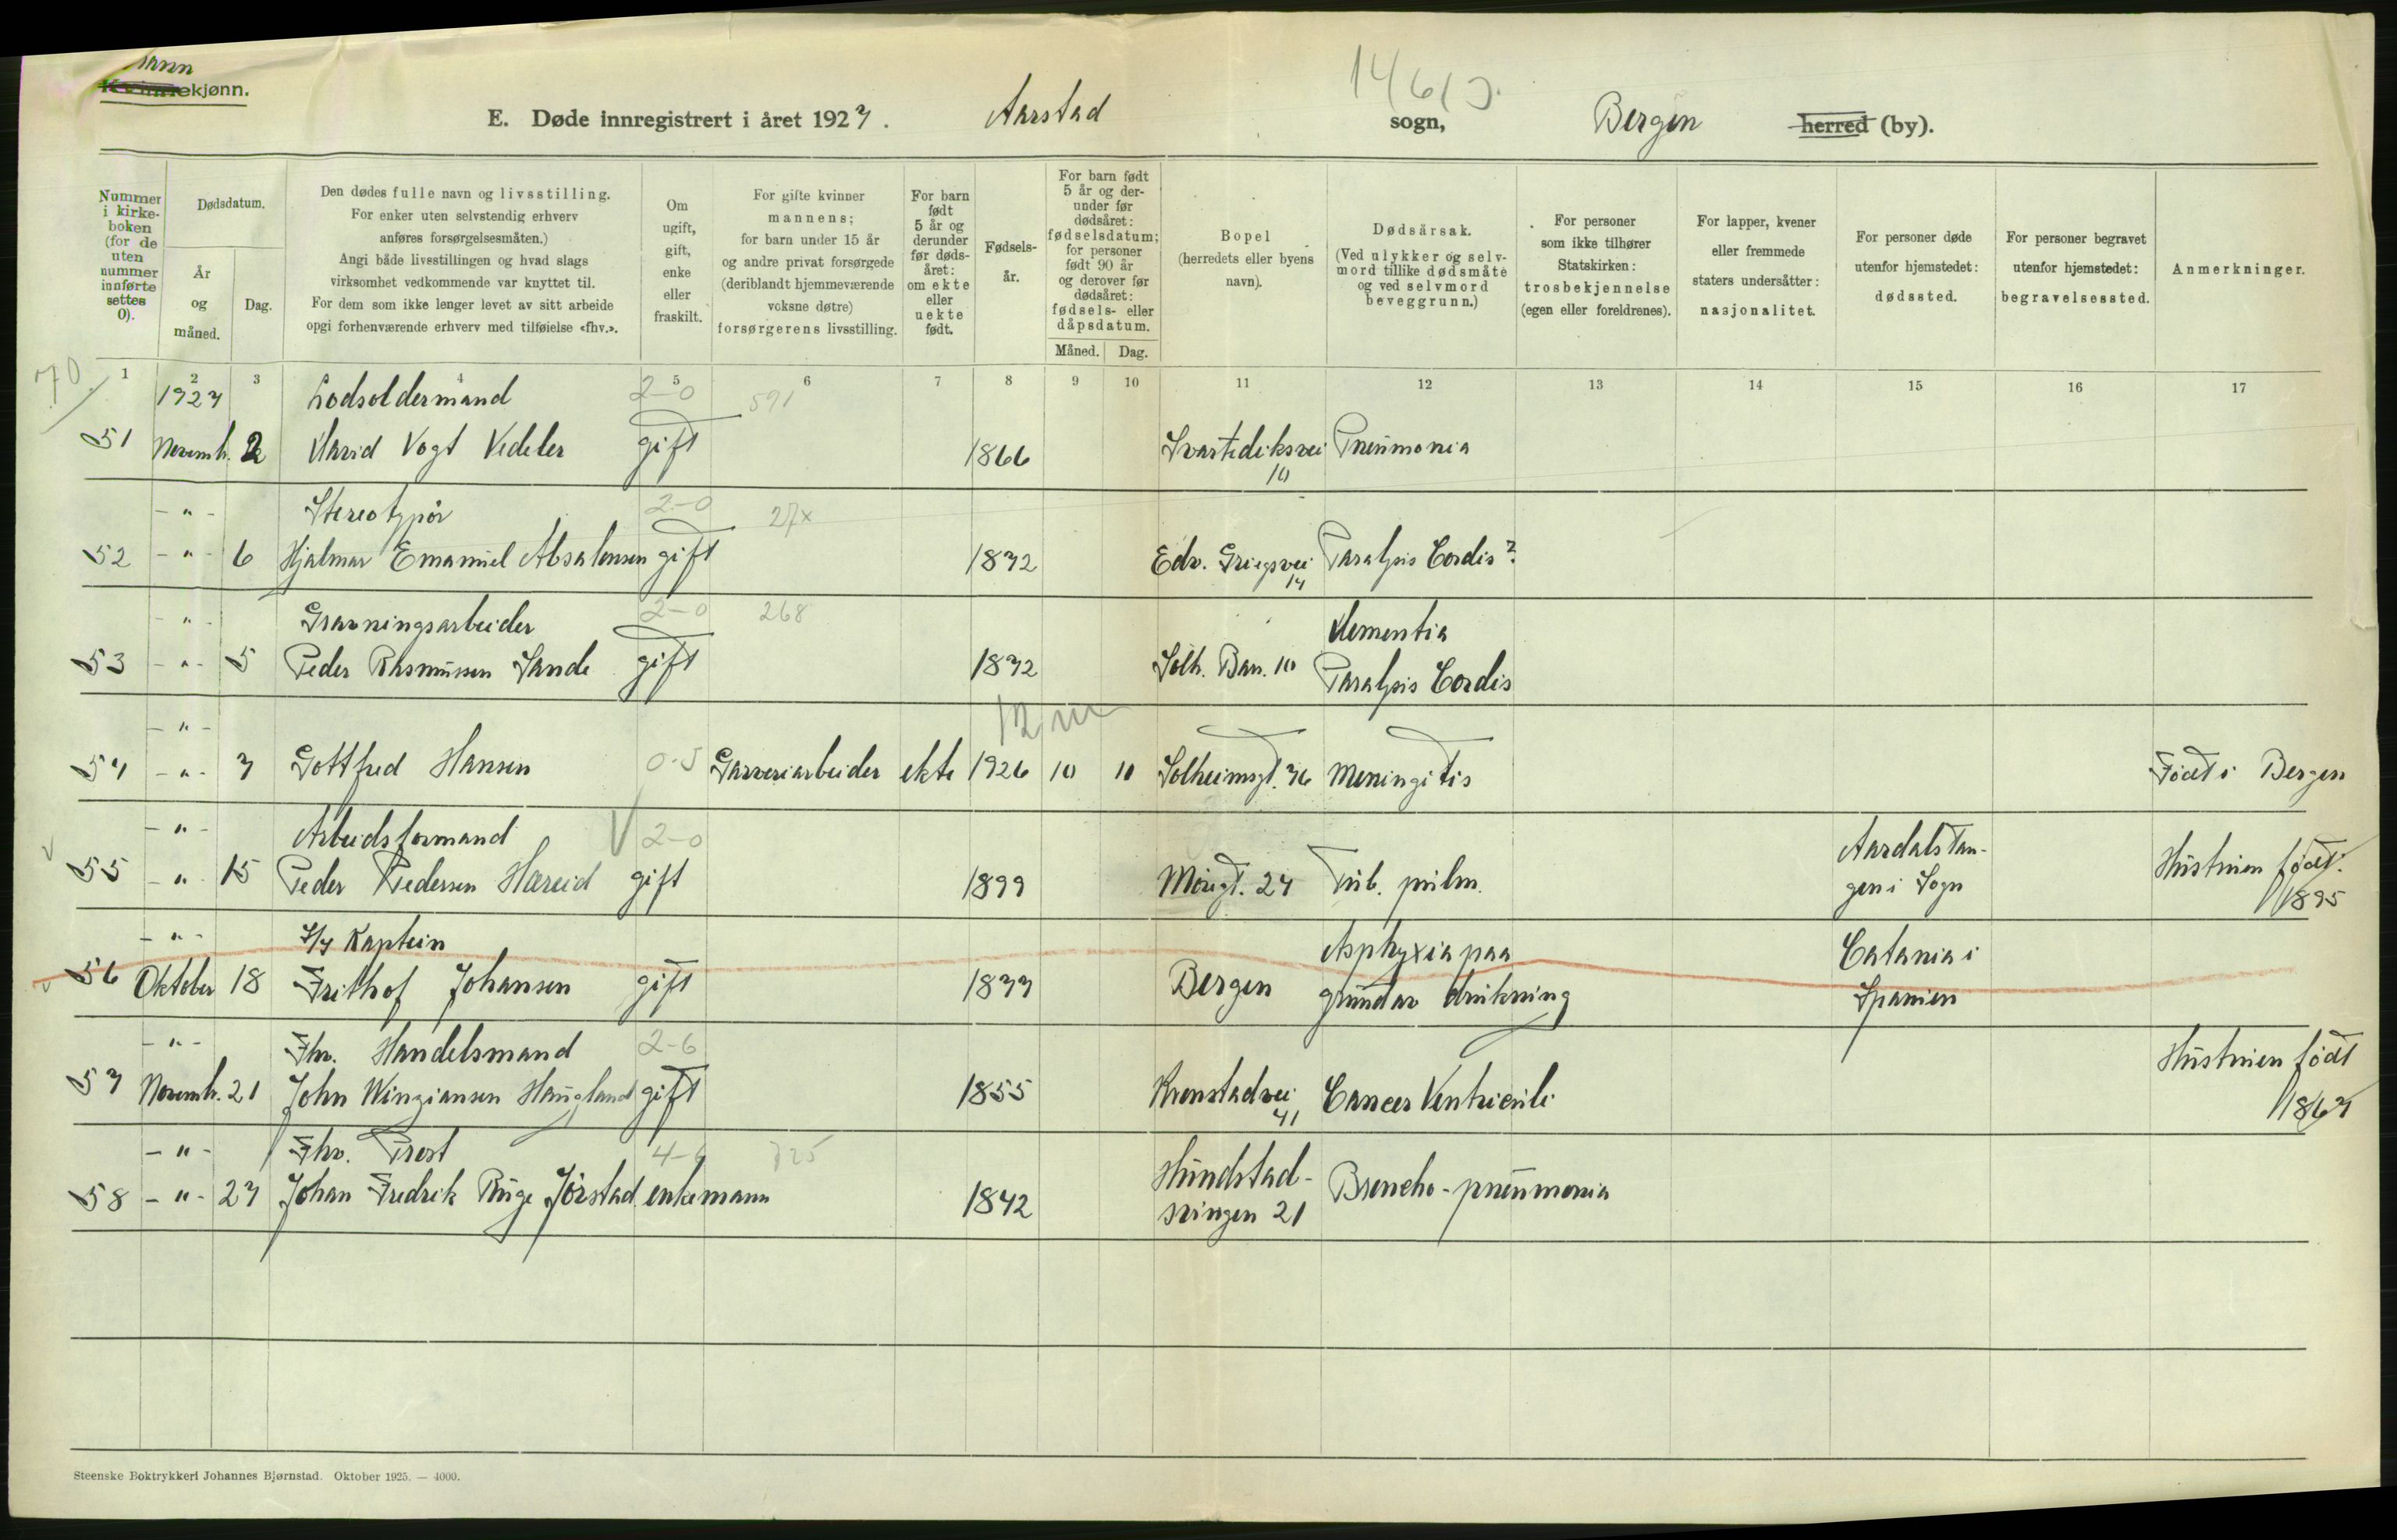 Mann
Kvinnekjønn.
E. Døde innregistrert i året 1927. Aarstad sogn, Bergen herred (by).
Nummer i kirkeboken (for de uten nummer innførte settes 0).
Dødsdatum.
År og måned.
Dag.
Den dødes fulle navn og livsstilling.
For enker uten selvstendig erhverv
anføres forsørgelsesmåten.)
Angi både livsstillingen og hvad slags
virksomhet vedkommende var knyttet til.
For dem som ikke lenger levet av sitt arbeide
opgi forhenværende erhverv med tilføielse «fhv.».
Om ugift, gift, enke eller fraskilt.
For gifte kvinner
mannens;
for barn under 15 år
og andre privat forsørgede
(deriblandt hjemmeværende
voksne døtre)
forsørgerens livsstilling.
For barn født 5 år og derunder før dødsåret: om ekte eller uekte født.
Fødselsår.
For barn født 5 år og derunder før dødsåret: fødselsdatum; for personer født 90 år og derover før dødsåret: fødsels- eller dåpsdatum.
Måned. Dag.
Bopel
(herredets eller byens
navn).
Dødsårsak.
(Ved ulykker og selvmord tillike dødsmåte og ved selvmord beveggrunn.)
For personer
som ikke tilhører
Statskirken:
trosbekjennelse
(egen eller foreldrenes).
For lapper, kvener
eller fremmede
staters undersåtter:
nasjonalitet.
For personer døde
utenfor hjemstedet:
dødssted.
For personer begravet
utenfor hjemstedet:
begravelsessted.
Anmerkninger.
70
1 2 3 4 5 6 7 8 9 10 11 12 13 14 15 16 17
1927 Lodsoldermand 2-0 591
51 Novemb. 2 David Vogt Vedeler gift 1866 Svartediksvei 10 Pneumonia
-"- Stereotypør 2-0 27x
52 -"- 6 Hjalmar Emanuel Absalonsen gift 1872 Edv. Griegsvei 14 Paralysis Cordis?
-"- Gravningsarbeider 2-0 268 Dementia
53 -"- 5 Peder Rasmussen Sande gift 1872 Solh. Bak. 10 Paralysis Cordis
-"- 12 m
54 -"- 7 Gottfred Hansen 0-5 Garveriarbeider ekte 1926 10 11 Solheimsgt. 76 Meningitis Født i Bergen
-"- Arbeidsformand 2-0 Aardalstan-
55 -"- 15 Peder Pedersen Hæreid gift 1899 Möregt. 27 Tub. pulm. gen i Sogn Hustruen født: 1895
-"- Kaptein Asphyxia paa Catania i
56 Oktober 18 Frithof Johansen gift 1877 Bergen grund av drukning Spanien
-"- Fhv. Handelsmand 2-6 Hustruen født
57 Novemb. 21 John Haugland gift 1855 Kronstadvei 41 Cancer Ventriculi 1867
-"- Fhv. Prest 725
58 -"- 27 Johan Fredrik Ruge Jørstad enkemann 1842 svingen 21 Broncho-pneumonia
Steenske Boktrykkeri Johannes Bjørnstad. Oktober 1925. — 4000.